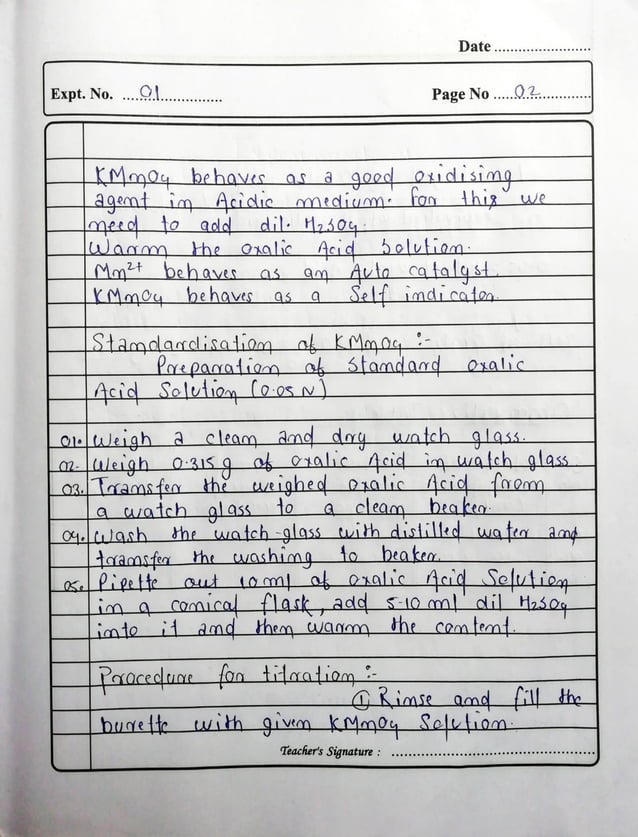 Date ..........................
Expt. No. ....01................ Page No .....02..............
KMnO4 behaves as a good oxidising
agent in Acidic medium. for this we
need to add dil. H2SO4.
Warm the oxalic Acid Solution.
Mn2+ behaves as an Auto catalyst.
KMnO4 behaves as a Self indicator.
Standardisation of KMnO4 :-
Preparation of Standard oxalic
Acid Solution (0.05 N)
01. Weigh a clean and dry watch glass.
02. Weigh 0.315 g of oxalic Acid in watch glass
03. Transfer the weighed oxalic Acid from
a watch glass to a clean beaker.
04. Wash the watch-glass with distilled water and
transfer the washing to beaker.
05. Pipette out 10 ml of oxalic Acid Solution
in a conical flask, add 5-10 ml dil H2SO4
into it and then warm the content.
Procedure for titration :-
① Rinse and fill the
burette with given KMnO4 Solution.
Teacher's Signature : ..........................................................